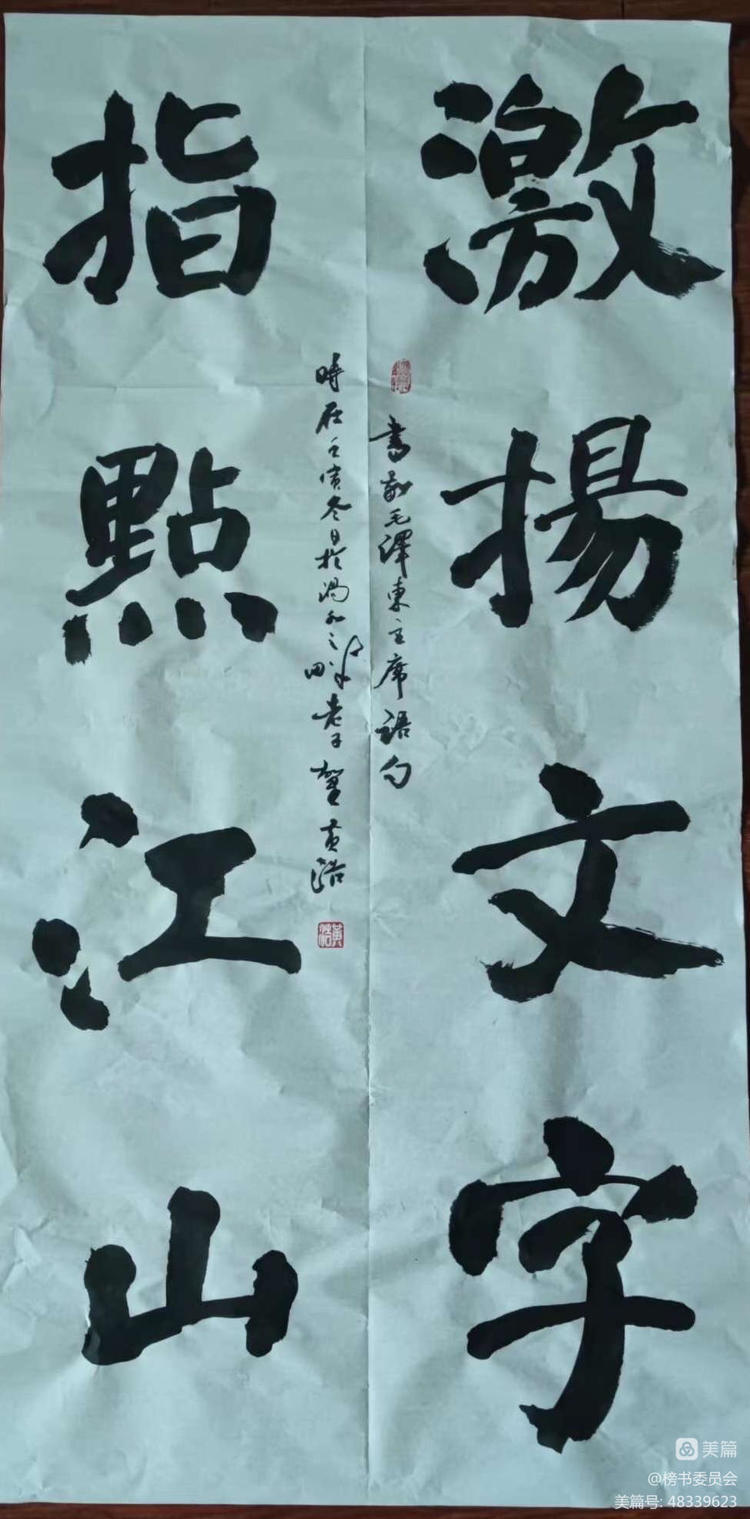 激揚文字
書毛澤東主席語句
時在壬寅冬日於渦水之畔老子黄浩
指點江山
美篇
@榜书委员会
美篇号: 48339623